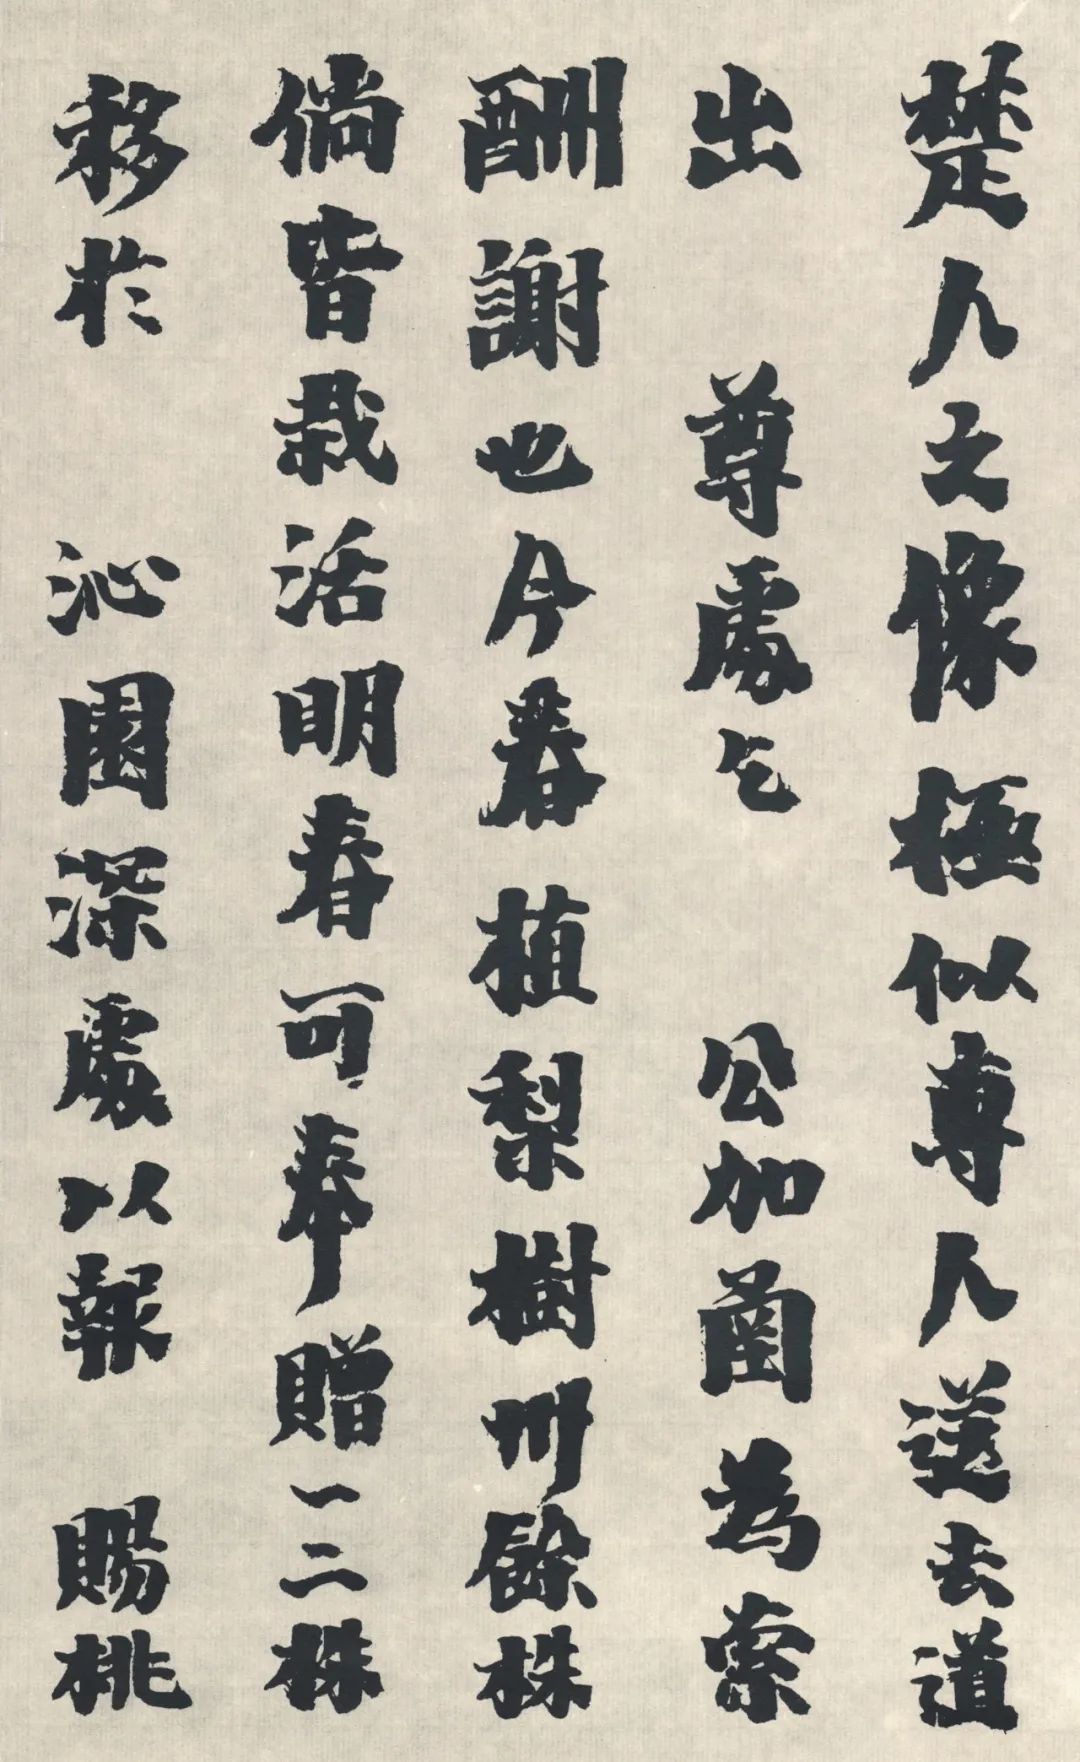 楚人之像極似尊人送去道
出 尊處乞 公加函為索
酬謝也今春植梨樹卅餘株
倘皆栽活明春可奉贈一二株
移於 沁園深處以報 賜桃